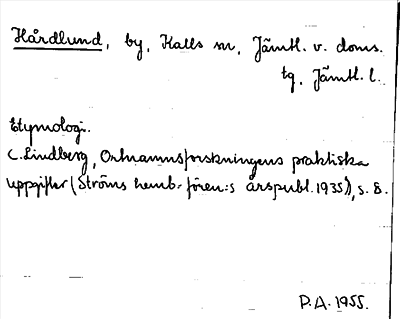 Hårdlund, by, Kalls sn, Jämtl. v. doms.
tg, Jämtl. l.
Etymologi.
C. Lindberg, Ortnamnsforskningens praktiska
uppgifter (Ströms hemb.fören:s årspubl. 1935), s. 8.
P.A. 1955.